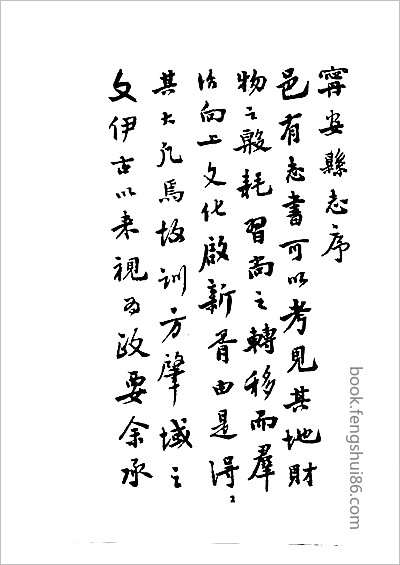 甯安縣志序
邑有志書可以考見其地財
物之殷耗習尚之轉移而羣
治向上文化啟新胥由是得
其大凡焉故訓方肇域之
文伊古以來視為政要余承
book.fengshui86.com